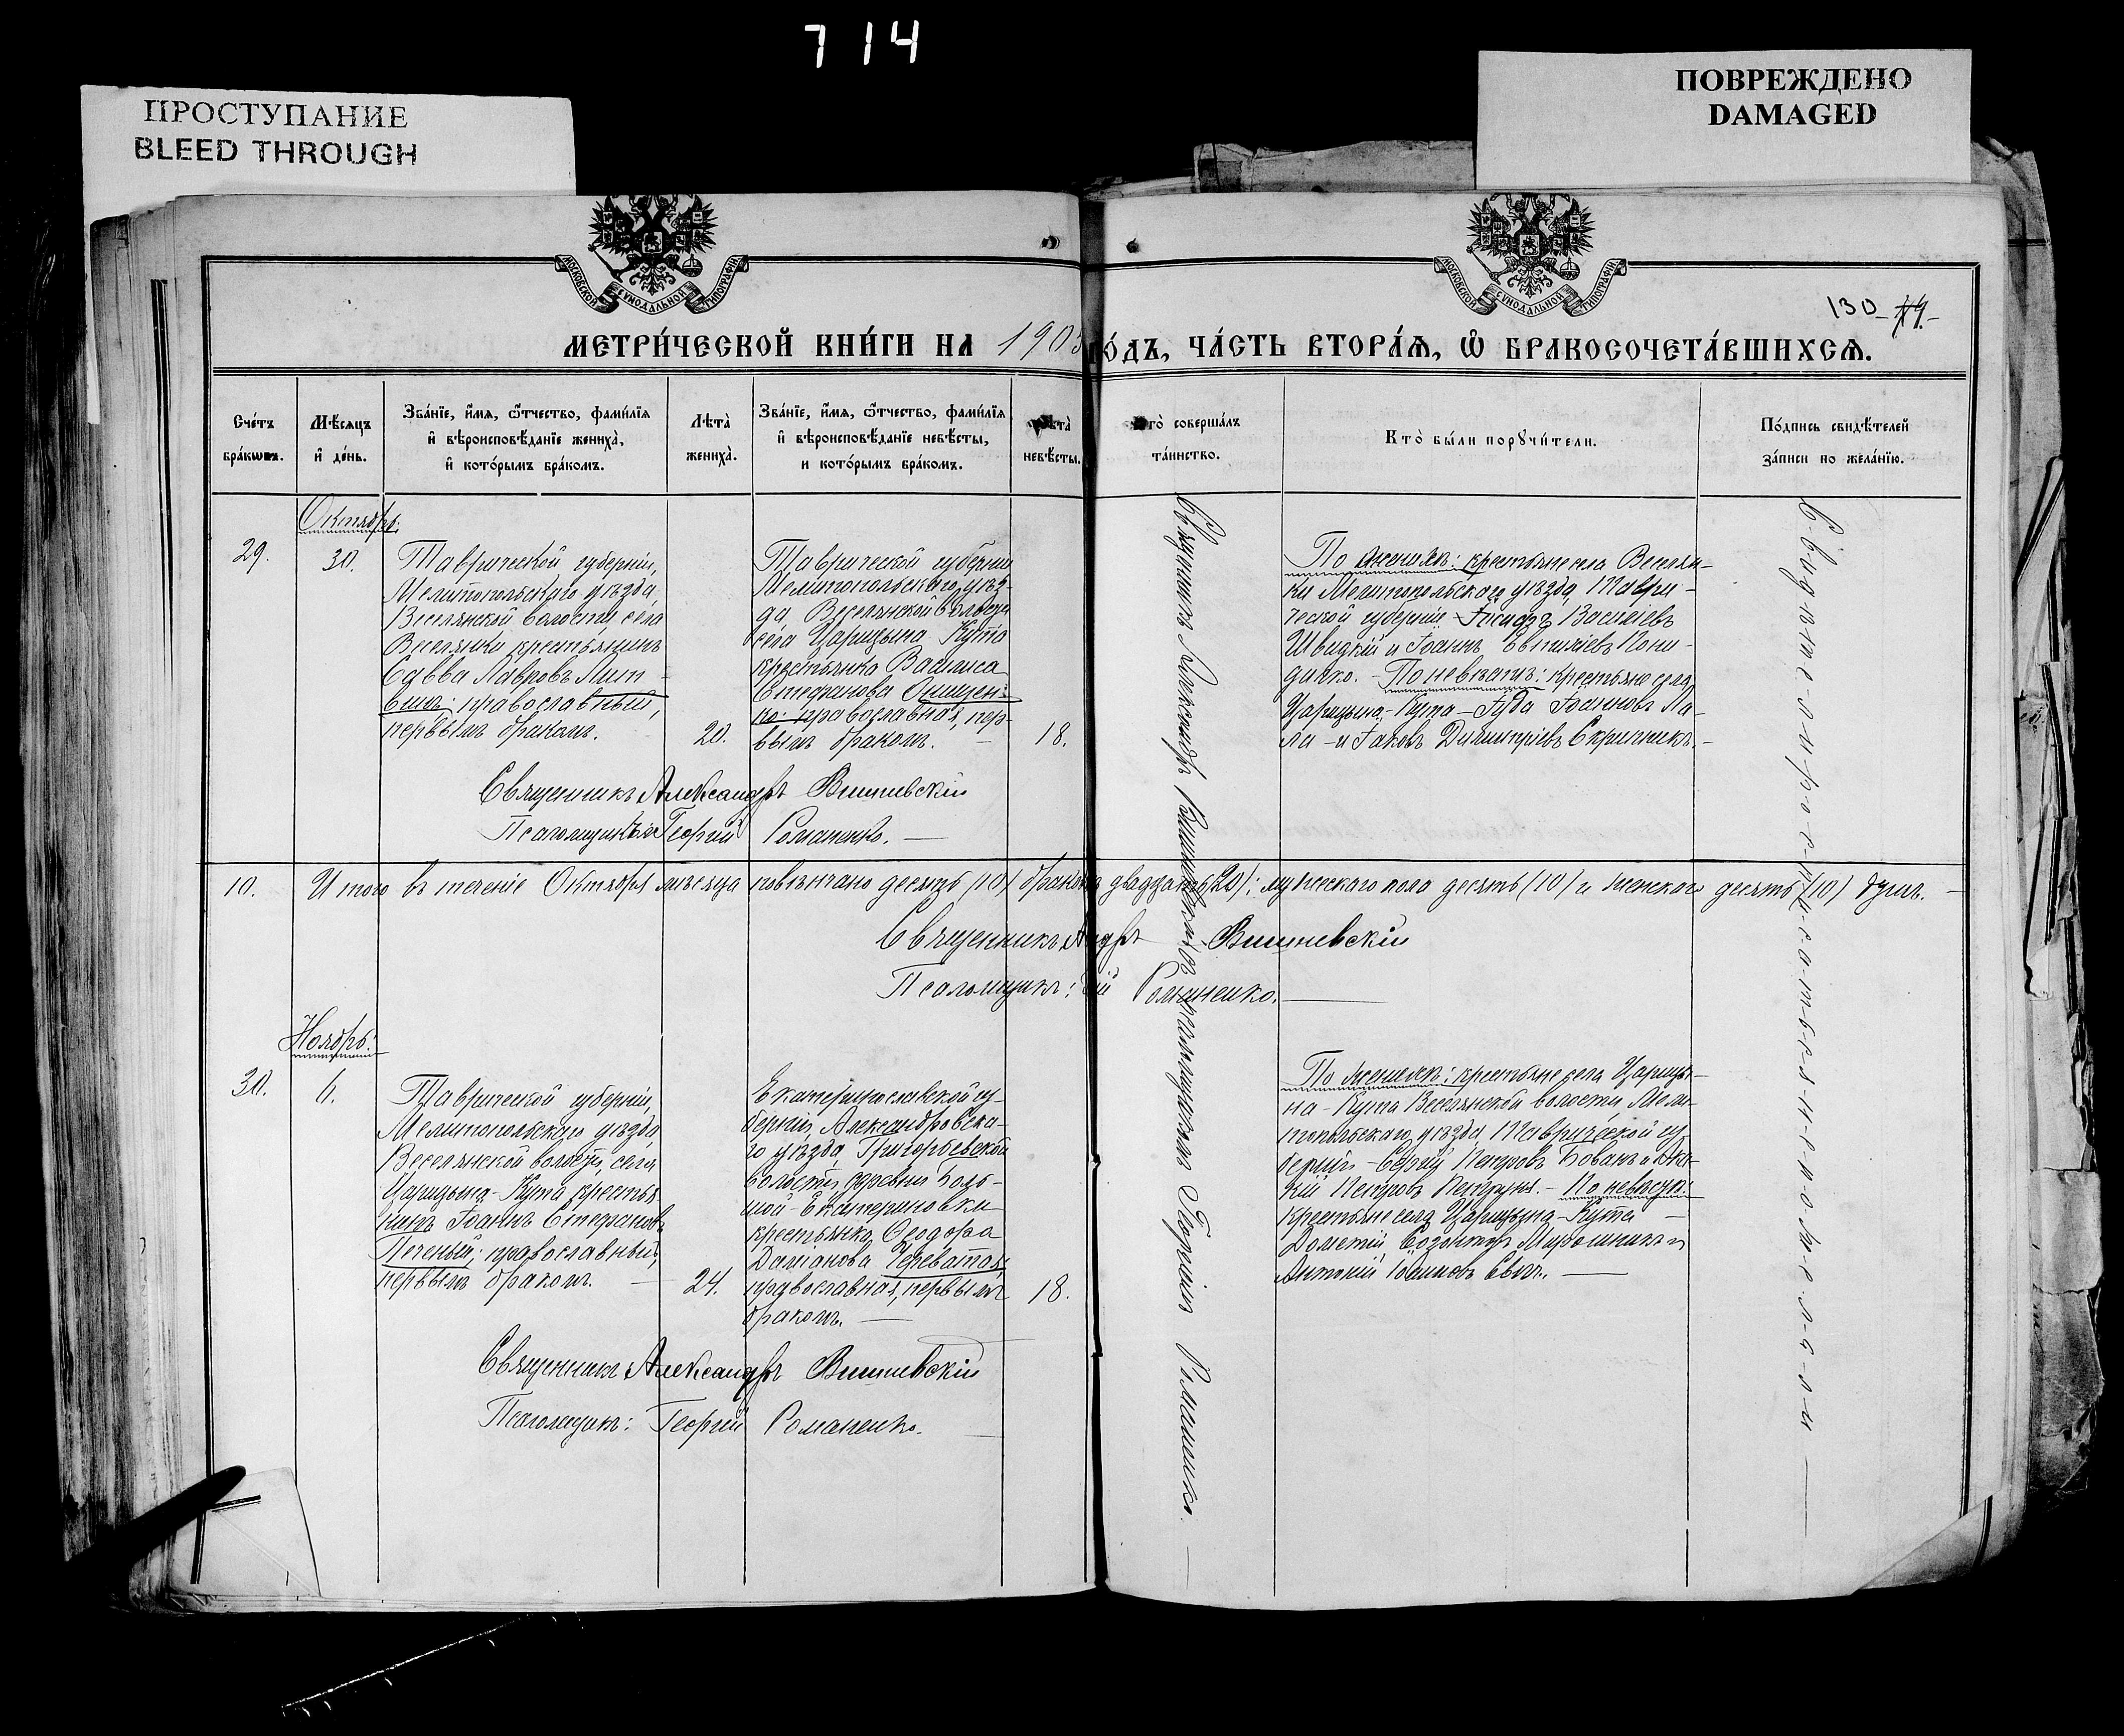 714
ПРОСТУПАНИЕ
BLEED THROUGH
ПОВРЕЖДЕНО
DAMAGED
МОСКОВСКОЙ СѴНОДАЛЬНОЙ ТИПОГРАФІИ
МОСКОВСКОЙ СѴНОДАЛЬНОЙ ТИПОГРАФІИ
130
МЕТРИ́ЧЕСКОЙ КНИ́ГИ НА 1903 ГО́ДЪ, ЧА́СТЬ ВТОРА́Ѧ, Ѡ҆ БРАКОСОЧЕТА́ВШИХСѦ.
Сче́тъ
бра́кѡвъ.
Мѣ́сяцъ
и҆ де́нь.
Зва́нїе, и҆́мя, ѻ҆́тчество, фами́лїя
и҆ вѣроисповѣ́данїе жениха̀,
и҆ кото́рымъ бра́комъ.
Лѣ́та̀
жениха̀.
Зва́нїе, и҆́мя, ѻ҆́тчество, фами́лїя
и҆ вѣроисповѣ́данїе невѣ́сты,
и кото́рымъ бра́комъ.
Лѣ́та̀
невѣ́сты.
Кто̀ соверша́лъ
та́инство.
Кто̀ бы́ли порꙋчи́тели.
По́дпись свидѣ́телей
за́писи по жела́нїю.
Октябрь:
29.
30.
Таврической губерніи,
Мелитопольскаго уѣзда,
Веселянской волости, села
Веселянки крестьянинъ
Савва Лавровъ
православный,
первымъ бракомъ.
20.
Таврической губерніи
Мелитопольскаго уѣз-
да Веселянской волости
села Царицына Кута
крестьянка Василиса
Стефанова Онищен-
ко: православная, пер-
вымъ бракомъ. —
18.
По женихѣ: крестьяне села Веселян-
ки Мелитопольскаго уѣзда, Таври-
ческой губерніи Васильевъ
Швидкій и Іоаннъ
По невѣстѣ: крестьяне села
Царицына-Кута — Іуда Іоанновъ Па-
и Іаковъ Димитріевъ Скрипникъ. —
Священникъ Александръ Вишневскій
Псаломщикъ Георгій Романенко. —
10.
Итого въ теченіе Октября мѣсяца повѣнчано десять (10) браковъ двадцать (20): мужескаго пола десять (10) и женскаго десять (10) душъ. —
Священникъ Вишневскій
Псаломщикъ: Романенко. —
Ноябрь:
30.
6.
Таврической губерніи,
Мелитопольскаго уѣзда,
Веселянской волости, села
Царицына-Кута крестья-
нинъ Іоаннъ Стефановъ
Печеный; православный,
первымъ бракомъ. —
24.
Екатеринославской гу-
берніи, Александровска-
го уѣзда Григорьевской
волости, деревни Боль-
шой-Екатериновки
крестьянка Ѳеодора
Даміанова Череватая:
православная, первымъ
бракомъ. —
18.
По женихѣ: крестьяне села Царицы-
на-Кута Веселянской волости Мели-
топольскаго уѣзда, Таврической гу-
берніи — Сергій Петровъ Бованъ и
Петровъ — По невѣстѣ:
крестьяне села Царицына-Кута —
Дометій Мирошникъ и
Антоній Іоанновъ
Священникъ Александръ Вишневскій
Псаломщикъ: Георгій Романенко.
Священникъ Александръ Вишневскій съ псаломщикомъ Георгіемъ Романенко. —